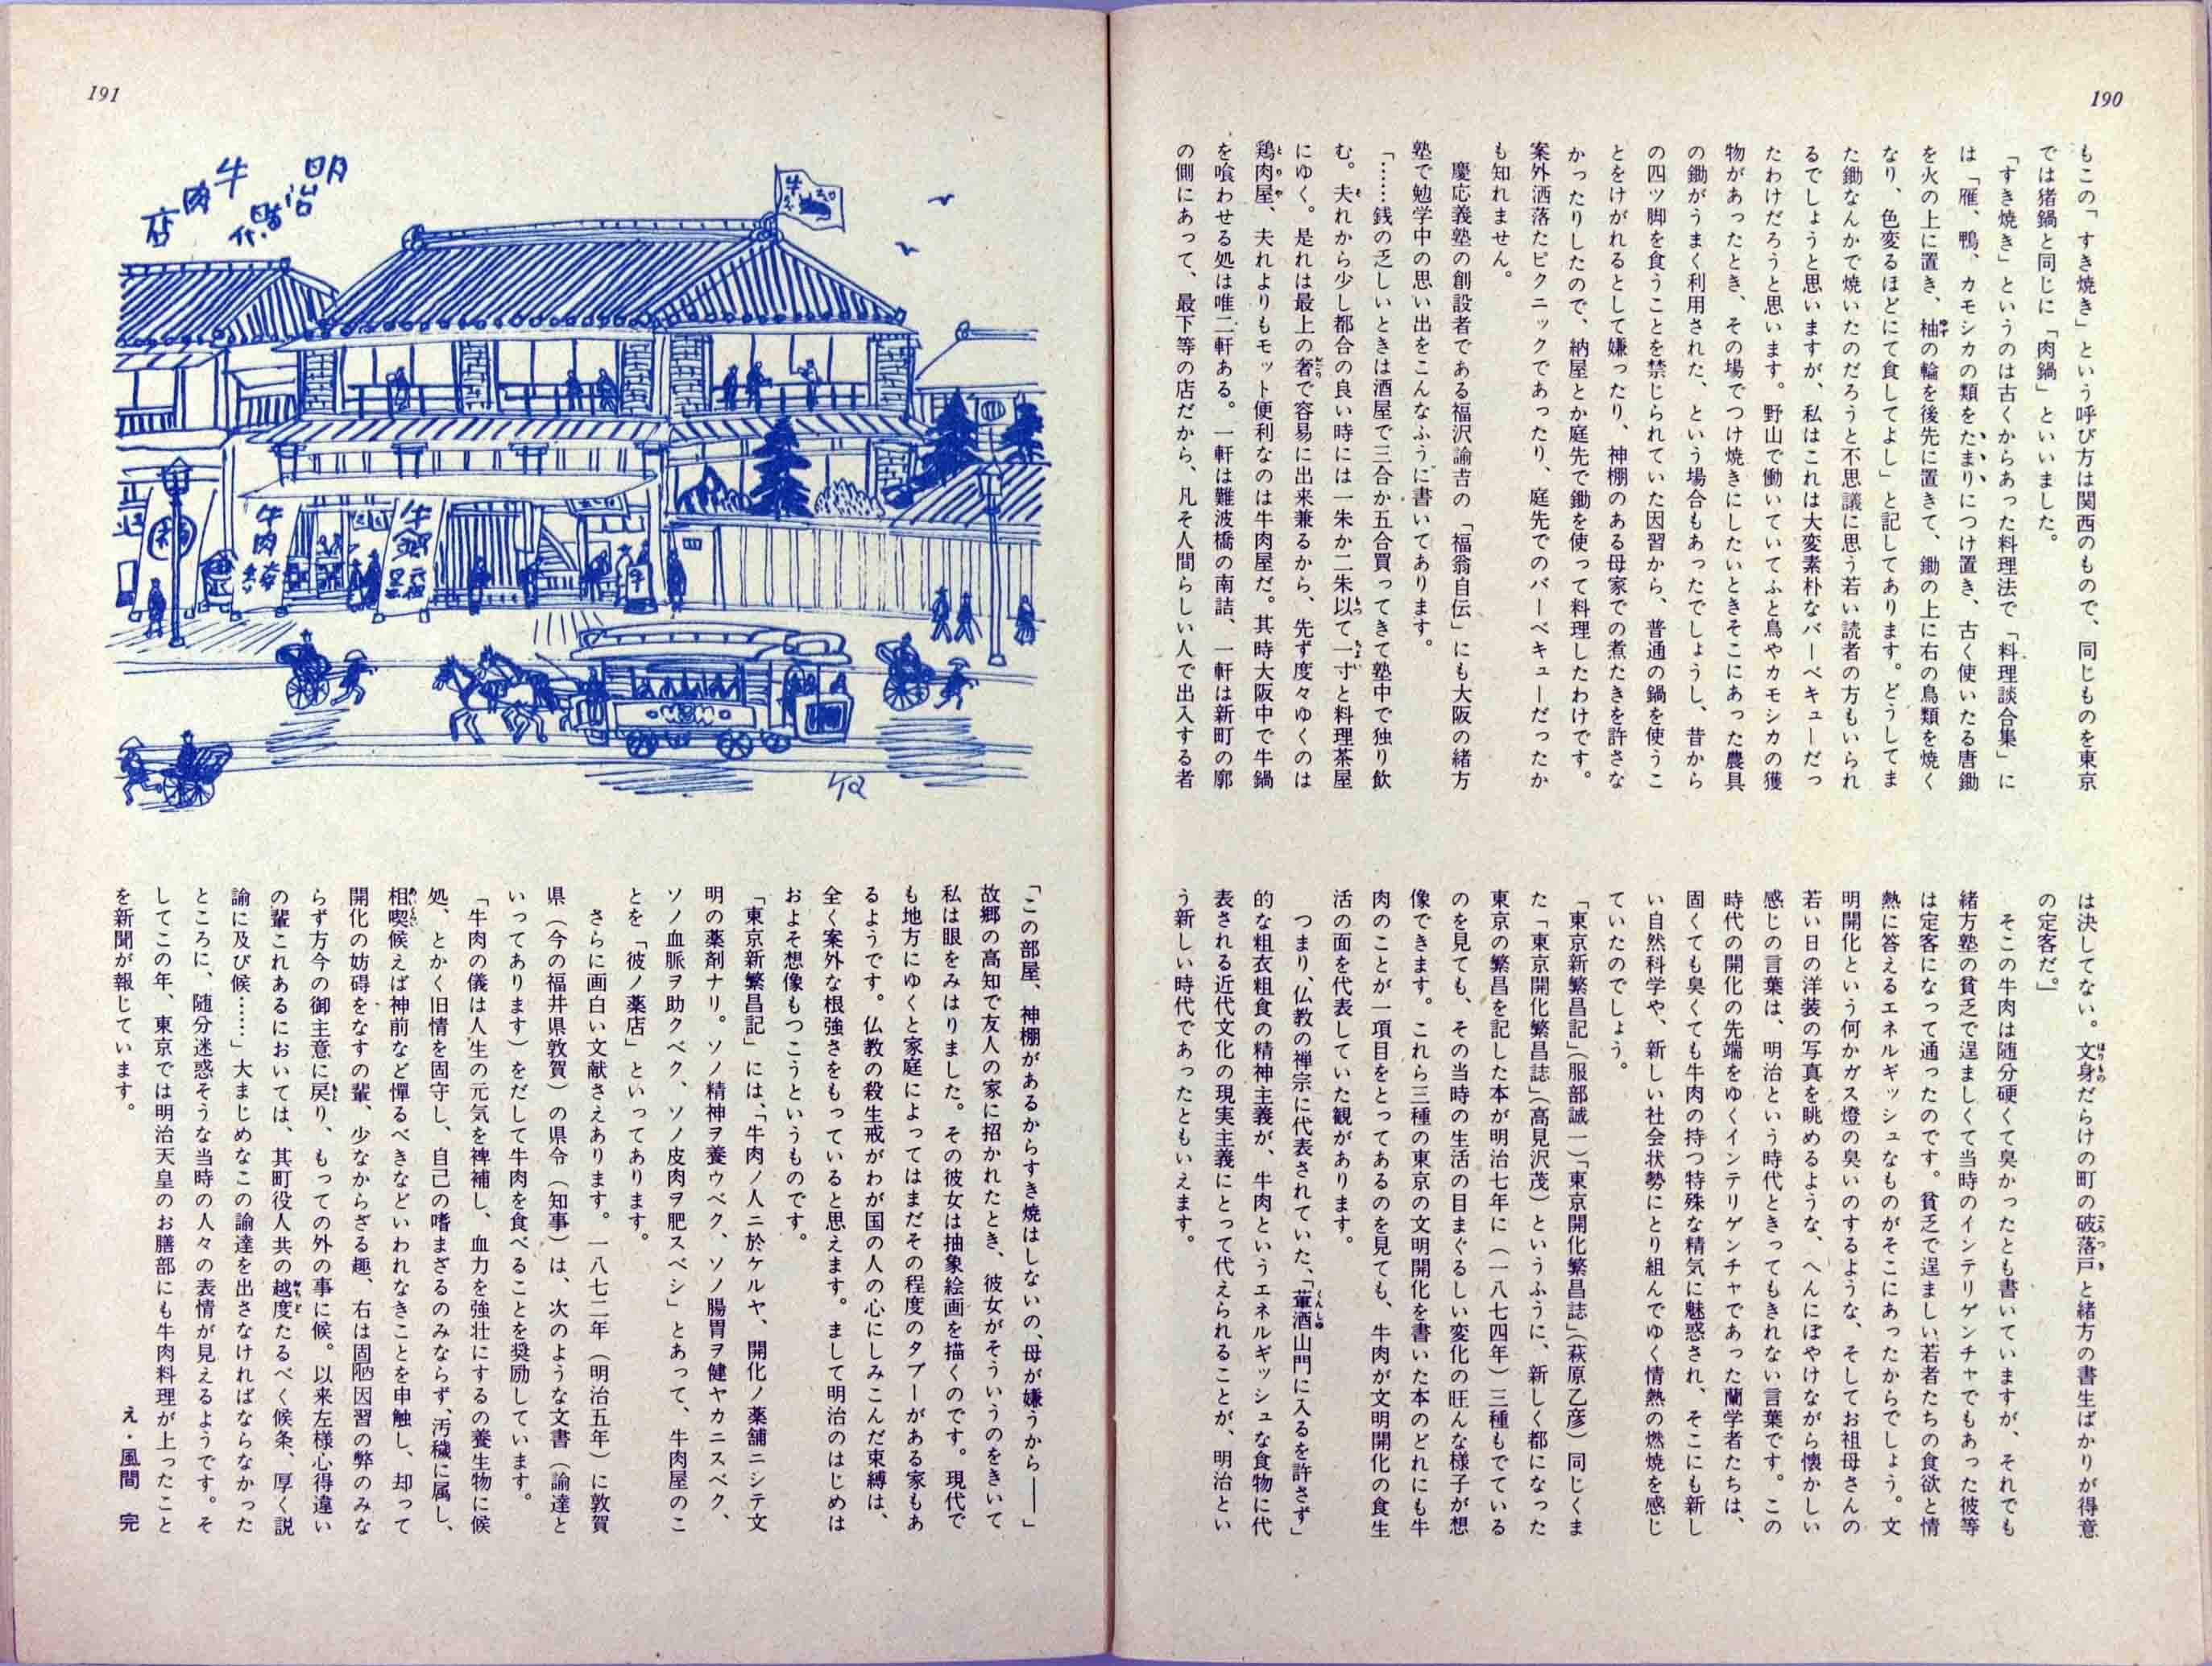 190
もこの「すき焼き」という呼び方は関西のもので、同じものを東京
では猪鍋と同じに「肉鍋」といいました。
「すき焼き」というのは古くからあった料理法で「料理談合集」に
は「雁、鴨、カモシカの類をたまりにつけ置き、古く使いたる唐鋤
を火の上に置き、柚の輪を後先に置きて、鋤の上に右の鳥類を焼く
なり、色変るほどにて食してよし」と記してあります。どうしてま
た鋤なんかで焼いたのだろうと不思議に思う若い読者の方もいられ
るでしょうと思いますが、私はこれは大変素朴なバーベキューだっ
たわけだろうと思います。野山で働いていてふと鳥やカモシカの獲
物があったとき、その場でつけ焼きにしたいときそこにあった農具
の鋤がうまく利用された、という場合もあったでしょうし、昔から
の四ツ脚を食うことを禁じられていた因習から、普通の鍋を使うこ
とをけがれるとして嫌ったり、神棚のある母家での煮たきを許さな
かったりしたので、納屋とか庭先で鋤を使って料理したわけです。
案外洒落たピクニックであったり、庭先でのバーベキューだったか
も知れません。
慶応義塾の創設者である福沢諭吉の「福翁自伝」にも大阪の緒方
塾で勉学中の思い出をこんなふうに書いてあります。
「……銭の乏しいときは酒屋で三合か五合買ってきて塾中で独り飲
む。夫れから少し都合の良い時には一朱か二朱以て一寸と料理茶屋
にゆく。是れは最上の奢で容易に出来兼るから、先ず度々ゆくのは
鶏肉屋、夫れよりもモット便利なのは牛肉屋だ。其時大阪中で牛鍋
を喰わせる処は唯二軒ある。一軒は難波橋の南詰、一軒は新町の廓
の側にあって、最下等の店だから、凡そ人間らしい人で出入する者
は決してない。文身だらけの町の破落戸と緒方の書生ばかりが得意
の定客だ。」
そこの牛肉は随分硬くて臭かったとも書いていますが、それでも
緒方塾の貧乏で逞ましくて当時のインテリゲンチャでもあった彼等
は定客になって通ったのです。貧乏で逞ましい若者たちの食欲と情
熱に答えるエネルギッシュなものがそこにあったからでしょう。文
明開化という何かガス燈の臭いのするような、そしてお祖母さんの
若い日の洋装の写真を眺めるような、へんにぼやけながら懐かしい
感じの言葉は、明治という時代ときってもきれない言葉です。この
時代の開化の先端をゆくインテリゲンチャであった蘭学者たちは、
固くても臭くても牛肉の持つ特殊な精気に魅惑され、そこにも新し
い自然科学や、新しい社会状勢にとり組んでゆく情熱の燃焼を感じ
ていたのでしょう。
「東京新繁昌記」(服部誠一)「東京開化繁昌誌」(萩原乙彦)同じくま
た「東京開化繁昌誌」(高見沢茂)というふうに、新しく都になった
東京の繁昌を記した本が明治七年に(一八七四年)三種もでている
のを見ても、その当時の生活の目まぐるしい変化の旺んな様子が想
像できます。これら三種の東京の文明開化を書いた本のどれにも牛
肉のことが一項目をとってあるのを見ても、牛肉が文明開化の食生
活の面を代表していた観があります。
つまり、仏教の禅宗に代表されていた、「葷酒山門に入るを許さず」
的な粗衣粗食の精神主義が、牛肉というエネルギッシュな食物に代
表される近代文化の現実主義にとって代えられることが、明治とい
う新しい時代であったともいえます。
191
明治時代
牛肉店
「この部屋、神棚があるからすき焼はしないの、母が嫌うから――」
故郷の高知で友人の家に招かれたとき、彼女がそういうのをきいて
私は眼をみはりました。その彼女は抽象絵画を描くのです。現代で
も地方にゆくと家庭によってはまだその程度のタブーがある家もあ
るようです。仏教の殺生戒がわが国の人の心にしみこんだ束縛は、
全く案外な根強さをもっていると思えます。まして明治のはじめは
およそ想像もつこうというものです。
「東京新繁昌記」には、「牛肉ノ人ニ於ケルヤ、開化ノ薬舗ニシテ文
明の薬剤ナリ。ソノ精神ヲ養ウベク、ソノ腸胃ヲ健ヤカニスベク、
ソノ血脈ヲ助クベク、ソノ皮肉ヲ肥スベシ」とあって、牛肉屋のこ
とを「彼ノ薬店」といってあります。
さらに画白い文献さえあります。一八七二年(明治五年)に敦賀
県(今の福井県敦賀)の県令(知事)は、次のような文書(諭達と
いってあります)をだして牛肉を食べることを奨励しています。
「牛肉の儀は人生の元気を裨補し、血力を強壮にするの養生物に候
処、とかく旧情を固守し、自己の嗜まざるのみならず、汚穢に属し、
相喫候えば神前など憚るべきなどといわれなきことを申触し、却って
開化の妨碍をなすの輩、少なからざる趣、右は固陋因習の弊のみな
らず方今の御主意に戻り、もっての外の事に候。以来左様心得違い
の輩これあるにおいては、其町役人共の越度たるべく候条、厚く説
諭に及び候……」大まじめなこの諭達を出さなければならなかった
ところに、随分迷惑そうな当時の人々の表情が見えるようです。そ
してこの年、東京では明治天皇のお膳部にも牛肉料理が上ったこと
を新聞が報じています。
え・風間 完